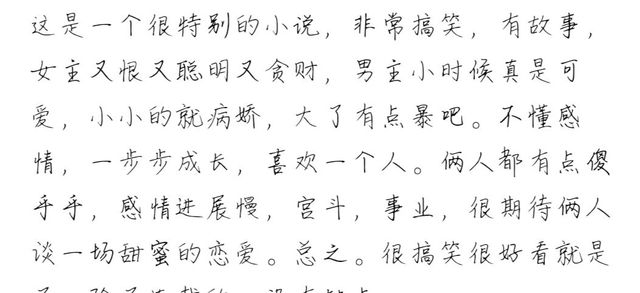 这是一个很特别的小说，非常搞笑，有故事，
女主又恨又聪明又贪财，男主小时候真是可
爱，小小的就病娇，大了有点暴吧。不懂感
情，一步步成长，喜欢一个人。俩人都有点傻
乎乎，感情进展慢，宫斗，事业，很期待俩人
谈一场甜蜜的恋爱。总之。很搞笑很好看就是